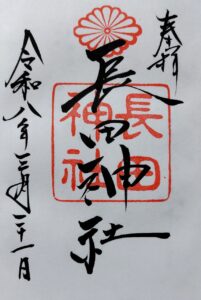 奉拝
長田神社
長田
神社
令和八年三月二十一月